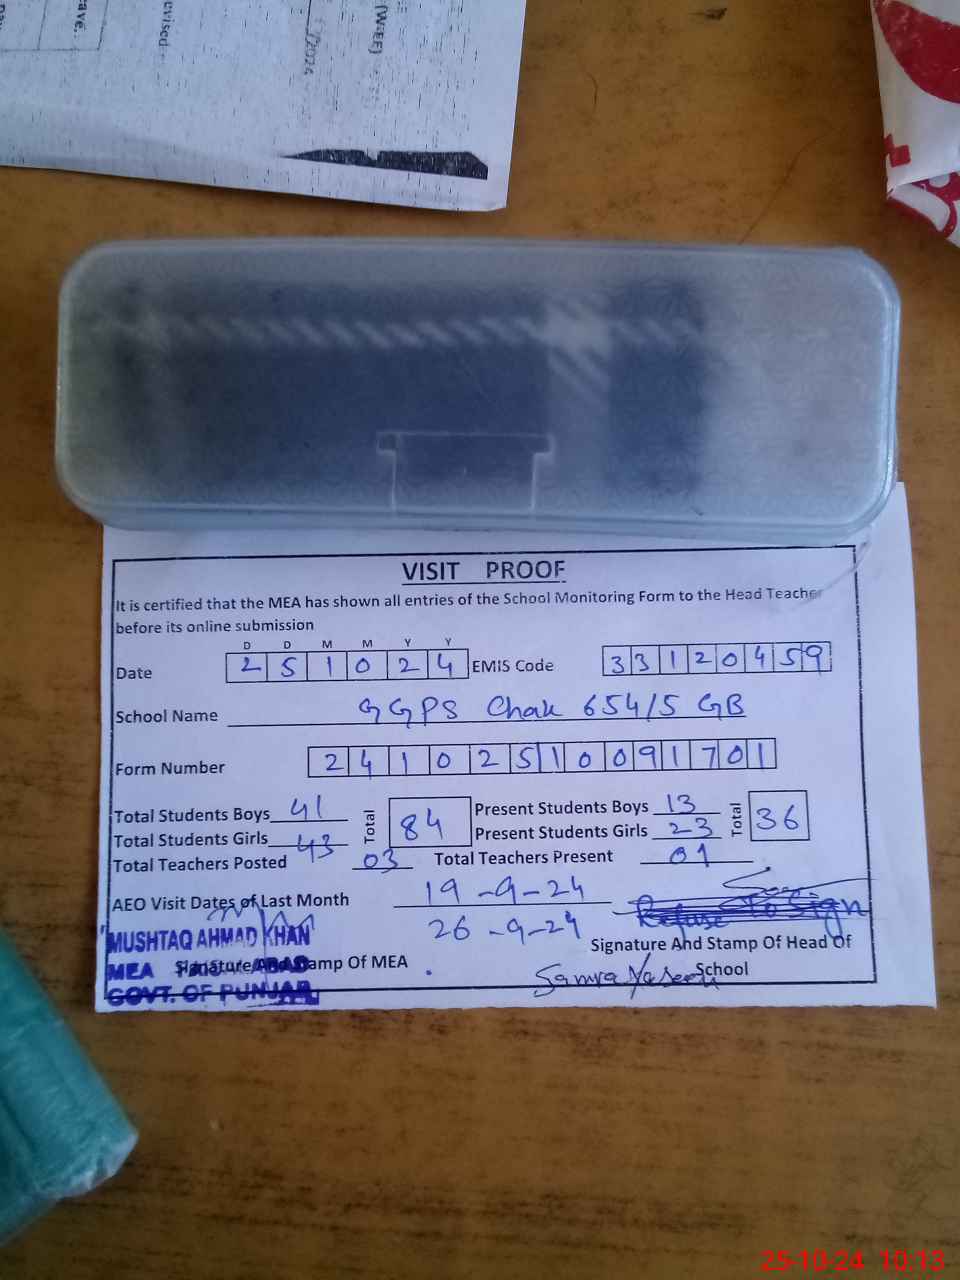 evised
ave.
(WEE)
/2024
VISIT PROOF
It is certified that the MEA has shown all entries of the School Monitoring Form to the Head Teacher
before its online submission
D D M M Y Y
Date 2 5 1 0 2 4 EMIS Code 3 3 1 2 0 4 5 9
School Name GGPS Chak 654/5 GB
Form Number 2 4 1 0 2 5 1 0 0 9 1 7 0 1
Total Students Boys 41 Total 84 Present Students Boys 13 Total 36
Total Students Girls 43 Present Students Girls 23
Total Teachers Posted 03 Total Teachers Present 01
AEO Visit Dates of Last Month 19-9-24
26-9-24
Refuse To Sign
MUSHTAQ AHMAD KHAN
Signature And Stamp Of Head Of
School
MEA
Signature And Stamp Of MEA
GOVT. OF PUNJAB
Samra Naseem
25-10-24 10:13